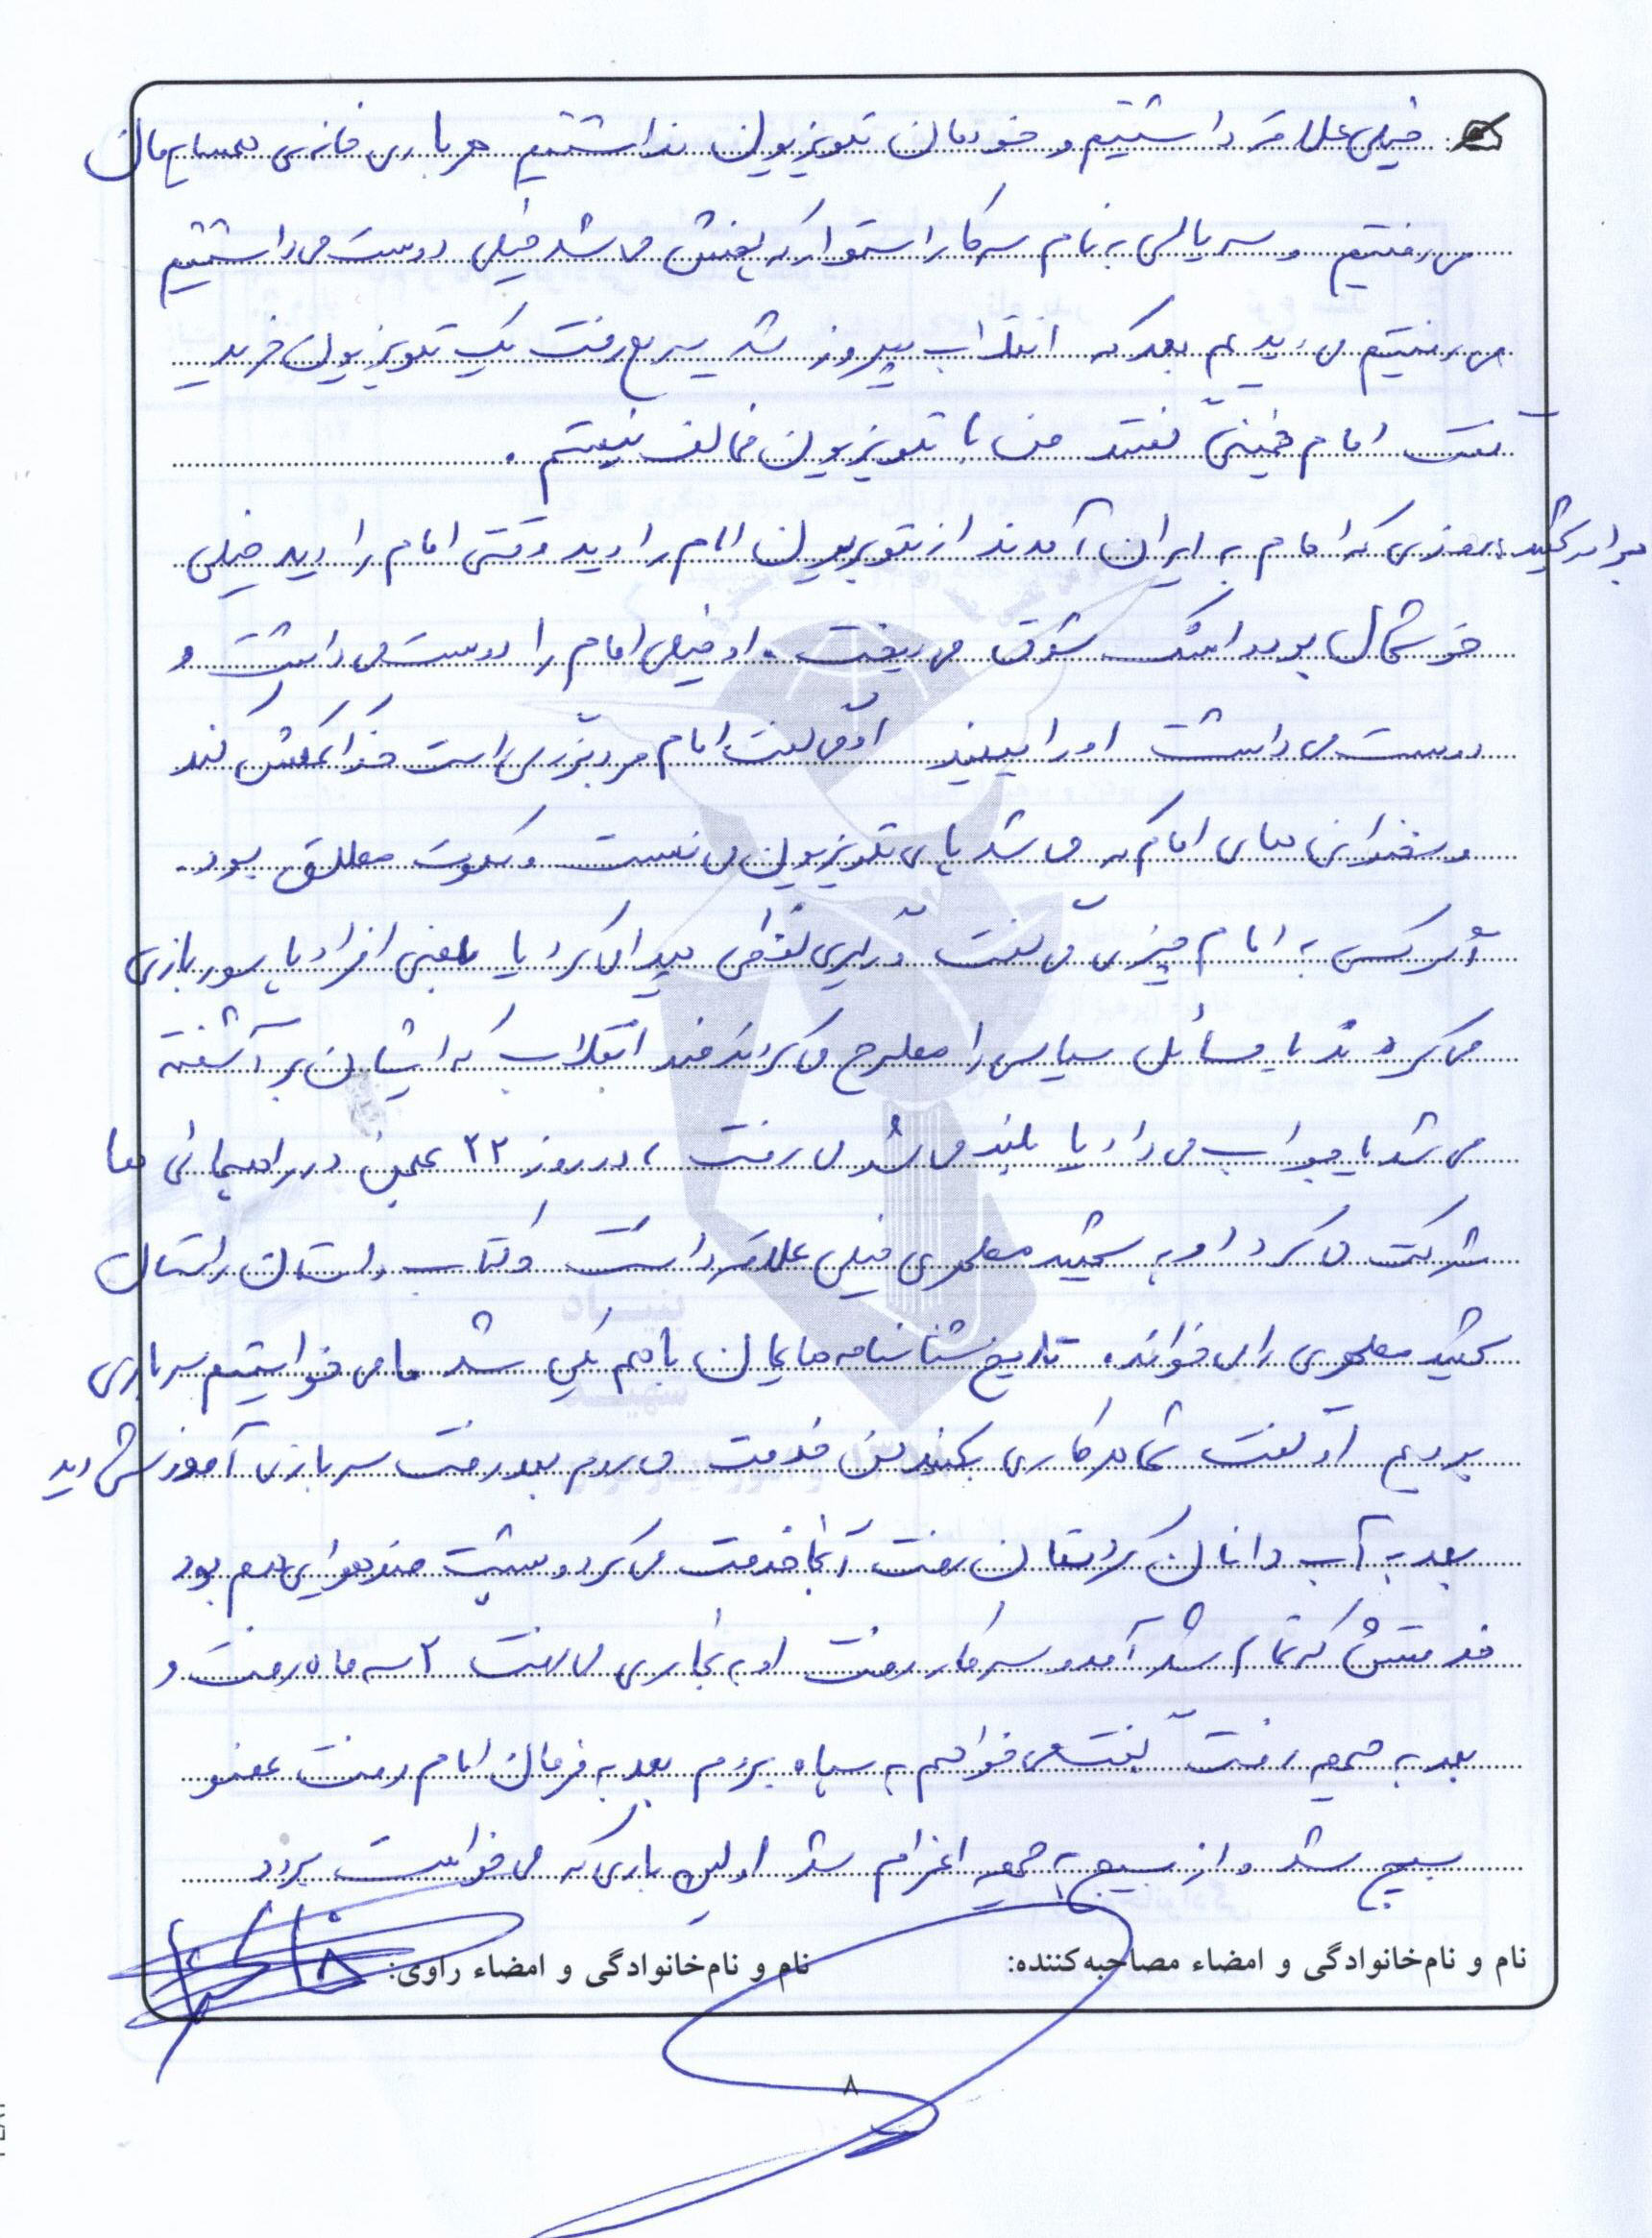 خیلی علاقه داشتیم و خودمان تلویزیون نداشتیم هر باری خانه‌ی همسایه‌مان
می‌رفتیم و سریالی به نام سرکار استوار که پخش می‌شد خیلی دوست می‌داشتیم
می‌رفتیم می‌دیدیم بعد که انقلاب پیروز شد سریع رفت یک تلویزیون خرید
گفت امام خمینی گفتند من با تلویزیون مخالف نیستم .
برادر شهید: روزی که امام به ایران آمدند از تلویزیون امام را دید وقتی امام را دید خیلی
خوشحال بود و اشک شوق می‌ریخت . او خیلی امام را دوست می‌داشت و
دوست می‌داشت او را ببیند او می‌گفت امام مرد بزرگی است خدا کمکش کند
و سخنرانی های امام که می‌شد پای تلویزیون می‌نشست و سکوت مطلق بود .
اگر کسی به امام چیزی می‌گفت درگیری لفظی پیدا می‌کرد یا بعضی افراد پاسور بازی
می‌کردند یا مسائل سیاسی را مطرح می‌کردند ضد انقلاب که ایشان برآشفته
می‌شد یا جواب می‌داد یا بلند می‌شد می‌رفت ، در روز ۲۲ بهمن در راهپیمائی ها
شرکت می‌کرد او به شهید مطهری خیلی علاقه داشت و کتاب داستان راستان
شهید مطهری را می‌خواند . تاریخ شناسنامه هایمان باهم یکی شد ما می‌خواستیم سربازی
برویم او گفت شما هر کاری بکنید من خدمت می‌روم بعد رفت سربازی آموزش دید
بعد به آب دانان کردستان رفت آنجا خدمت می‌کرد و شیت ضد هوایی هم بود
خدمتش که تمام شد آمد و سر کار رفت او به نجاری می‌رفت ۲ سه ماه رفت و
بعد به جبهه رفت گفت می‌خواهم به سپاه بروم بعد به فرمان امام رفت عضو
بسیج شد و از بسیج به جبهه اعزام شد اولین باری که می‌خواست برود
نام و نام‌خانوادگی و امضاء مصاحبه‌کننده: نام و نام‌خانوادگی و امضاء راوی:
۸